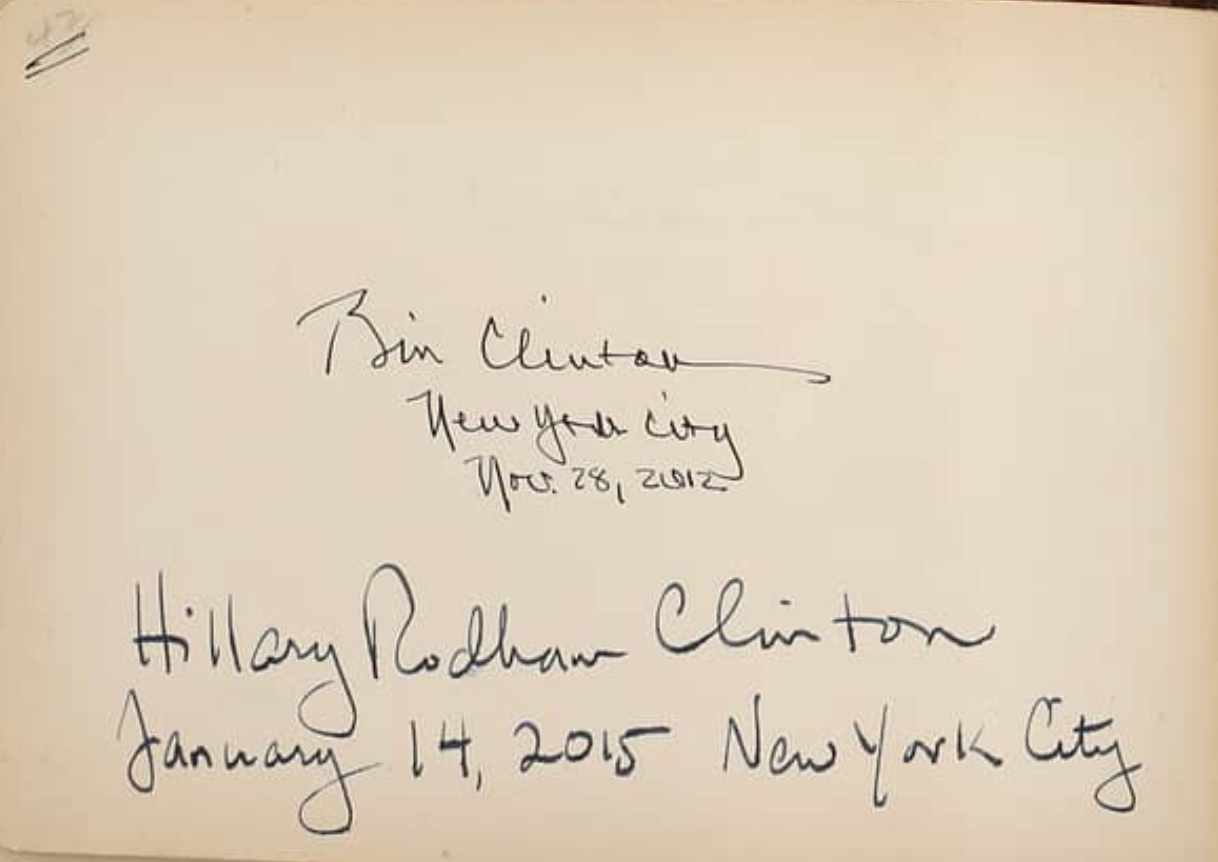 42
Bill Clinton
New York City
Nov. 28, 2012
Hillary Rodham Clinton
January 14, 2015 New York City